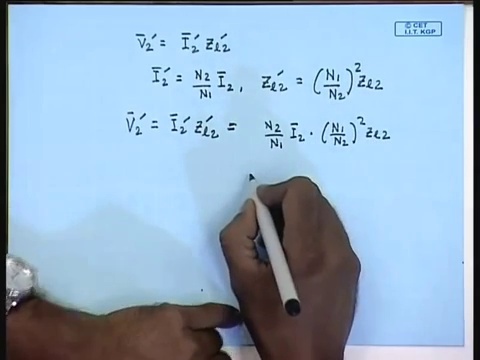 © CET
I.I.T. KGP
V̄₂′ = Ī₂′ Zℓ₂′
Ī₂′ = N₂/N₁ Ī₂, Zℓ₂′ = (N₁/N₂)² Zℓ₂
V̄₂′ = Ī₂′ Zℓ₂′ = N₂/N₁ Ī₂ · (N₁/N₂)² Zℓ₂